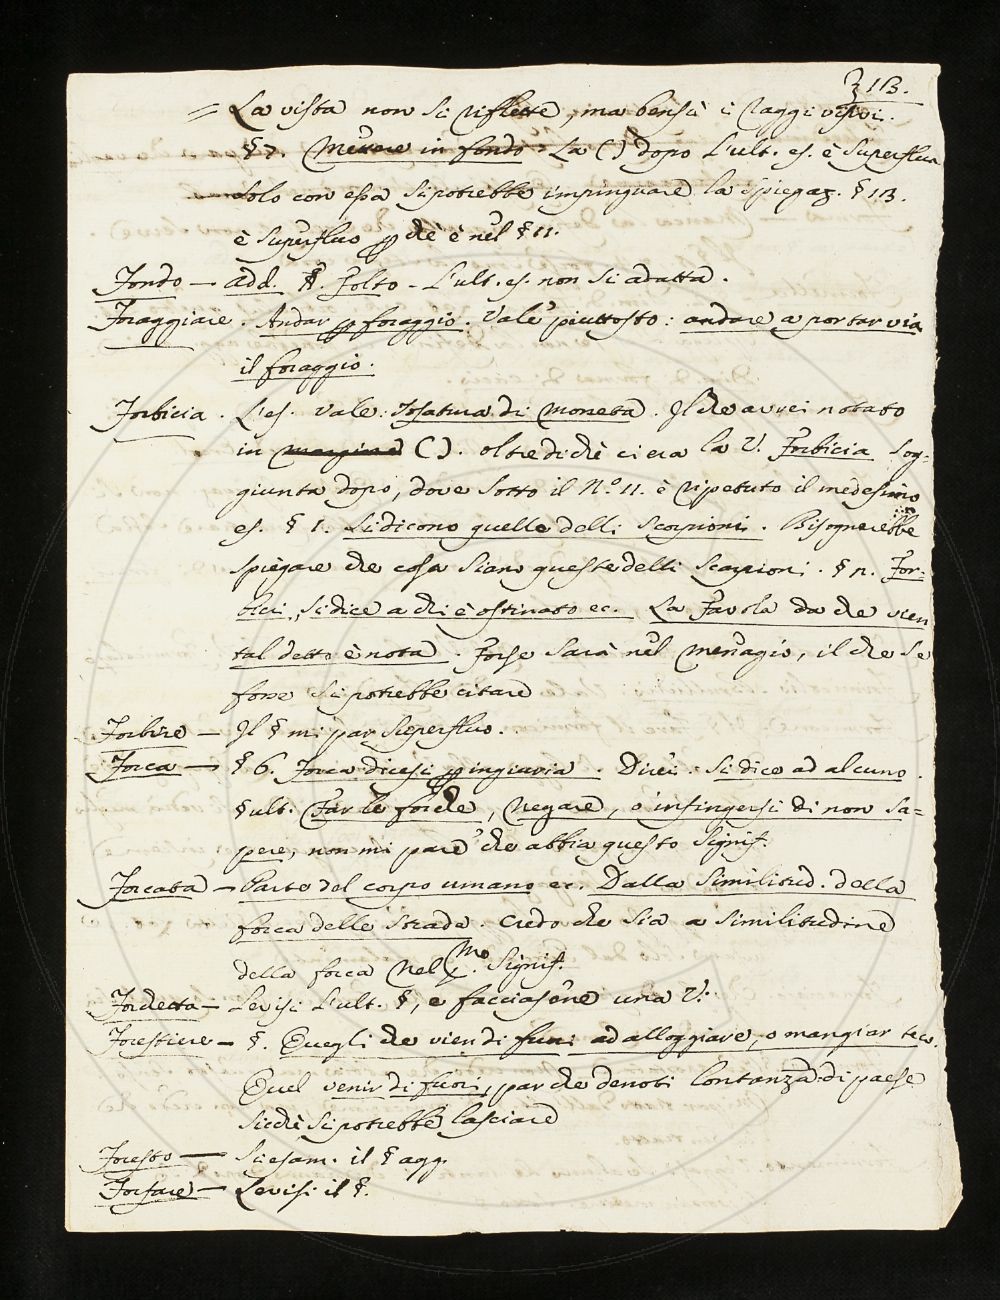 313.
= La vista non si riflette, ma bensì i raggi visivi.
§ 7. Mettere in fondo. La () dopo l'ult. es. è superflua
solo con essa si potrebbe impinguare la spiegaz. § 13.
è superfluo p chè è nel § 11.
Fondo — add. §. folto - L'ult. es. non si adatta.
Foraggiare. Andar p foraggio. Vale piuttosto: andare a portar via
il foraggio.
Forbicia. L'es. vale: Tosatura di moneta. Il che avrei notato
in margine (). oltre di chè ci era la V. Forbicia sog-
giunta dopo, dove sotto il N.º 11. è ripetuto il medesimo
es. § 1. Si dicono quelle delli scorpioni. Bisognerebbe
spiegare che cosa siano queste delli scorpioni. § n. For-
bici, si dice a chi è ostinato ec. La Favola da che vien
tal detto è nota. Forse sarà nel Menagio, il che se
fosse si potrebbe citare
Forbire — Il § mi par superfluo.
Forca — § 6. Forca dicesi p ingiuria. Direi: si dice ad alcuno.
§ ult. Far le forche, Negare, o infingersi di non sa-
pere, non mi pare che abbia questo signif.
Forcata — Parte del corpo umano ec. Dalla similitud. della
forca delle strade. Credo che sia a similitudine
della forca nel Mo signif.
Forchetta — Levisi l'ult. §, e facciasene una V.
Forestiere — §. Quegli che vien di fuori ad alloggiare, o mangiar teco.
Quel venir di fuori, par che denoti lontananza di paese
sicchè si potrebbe lasciare
Foresto — Si esam. il § agg.
Forfare — Levisi il §.